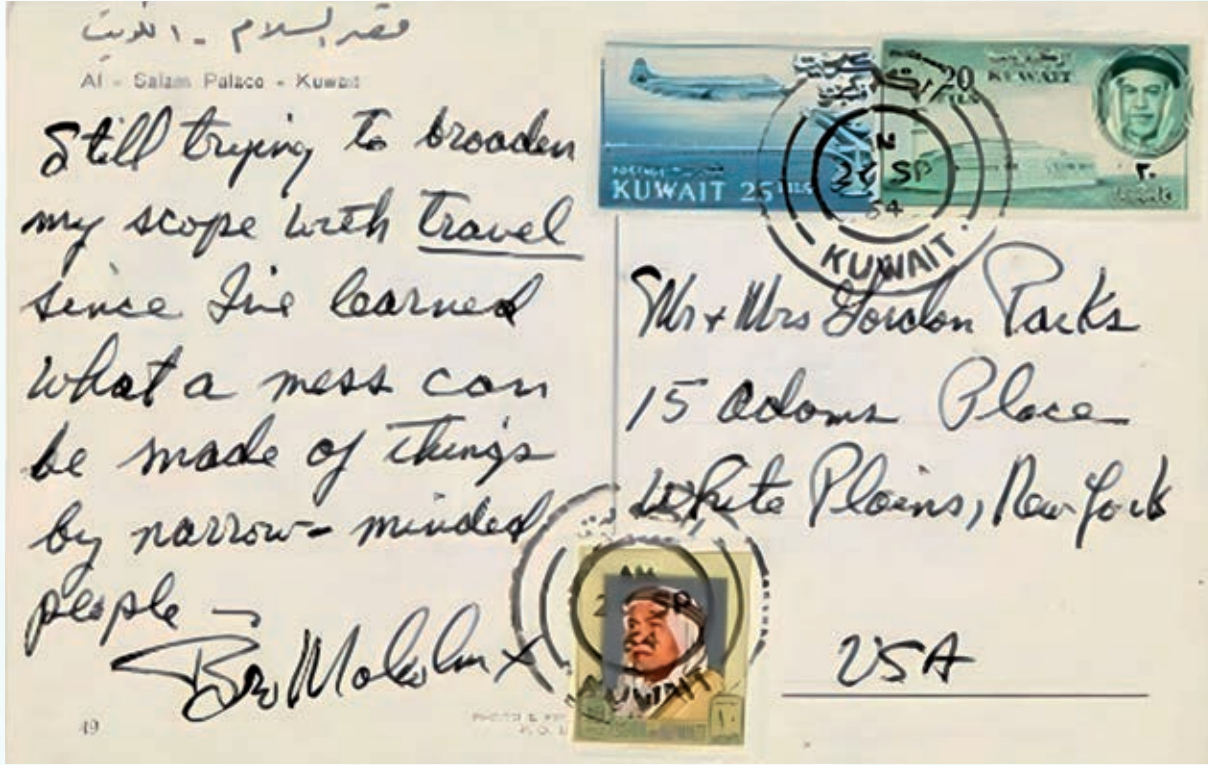 قصر السلام - الكويت
Al - Salam Palace - Kuwait
Still trying to broaden
my scope with travel
since I've learned
what a mess can
be made of things
by narrow-minded
people —
Bro Malcolm X
49
KUWAIT 25 FILS
20
KUWAIT
٢٠
SP
KUWAIT.
Mr + Mrs Gordon Parks
15 Adams Place
White Plains, New York
USA
AM
SP
KUWAIT
١٠